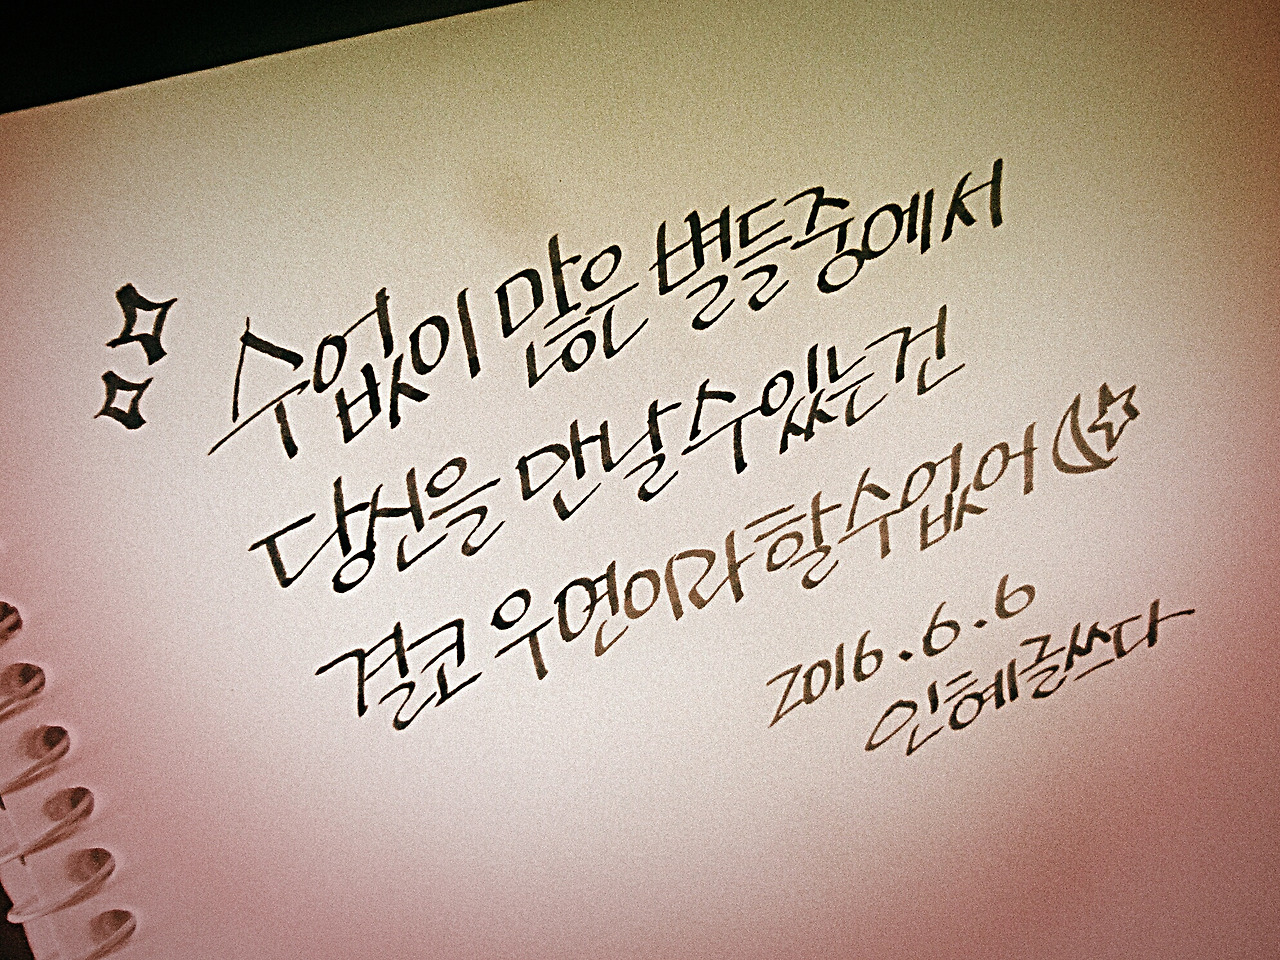 수없이 많은 별들중에서
당신을 만날 수 있는건
결코 우연이라 할 수 없어
2016.6.6
인혜글쓰다